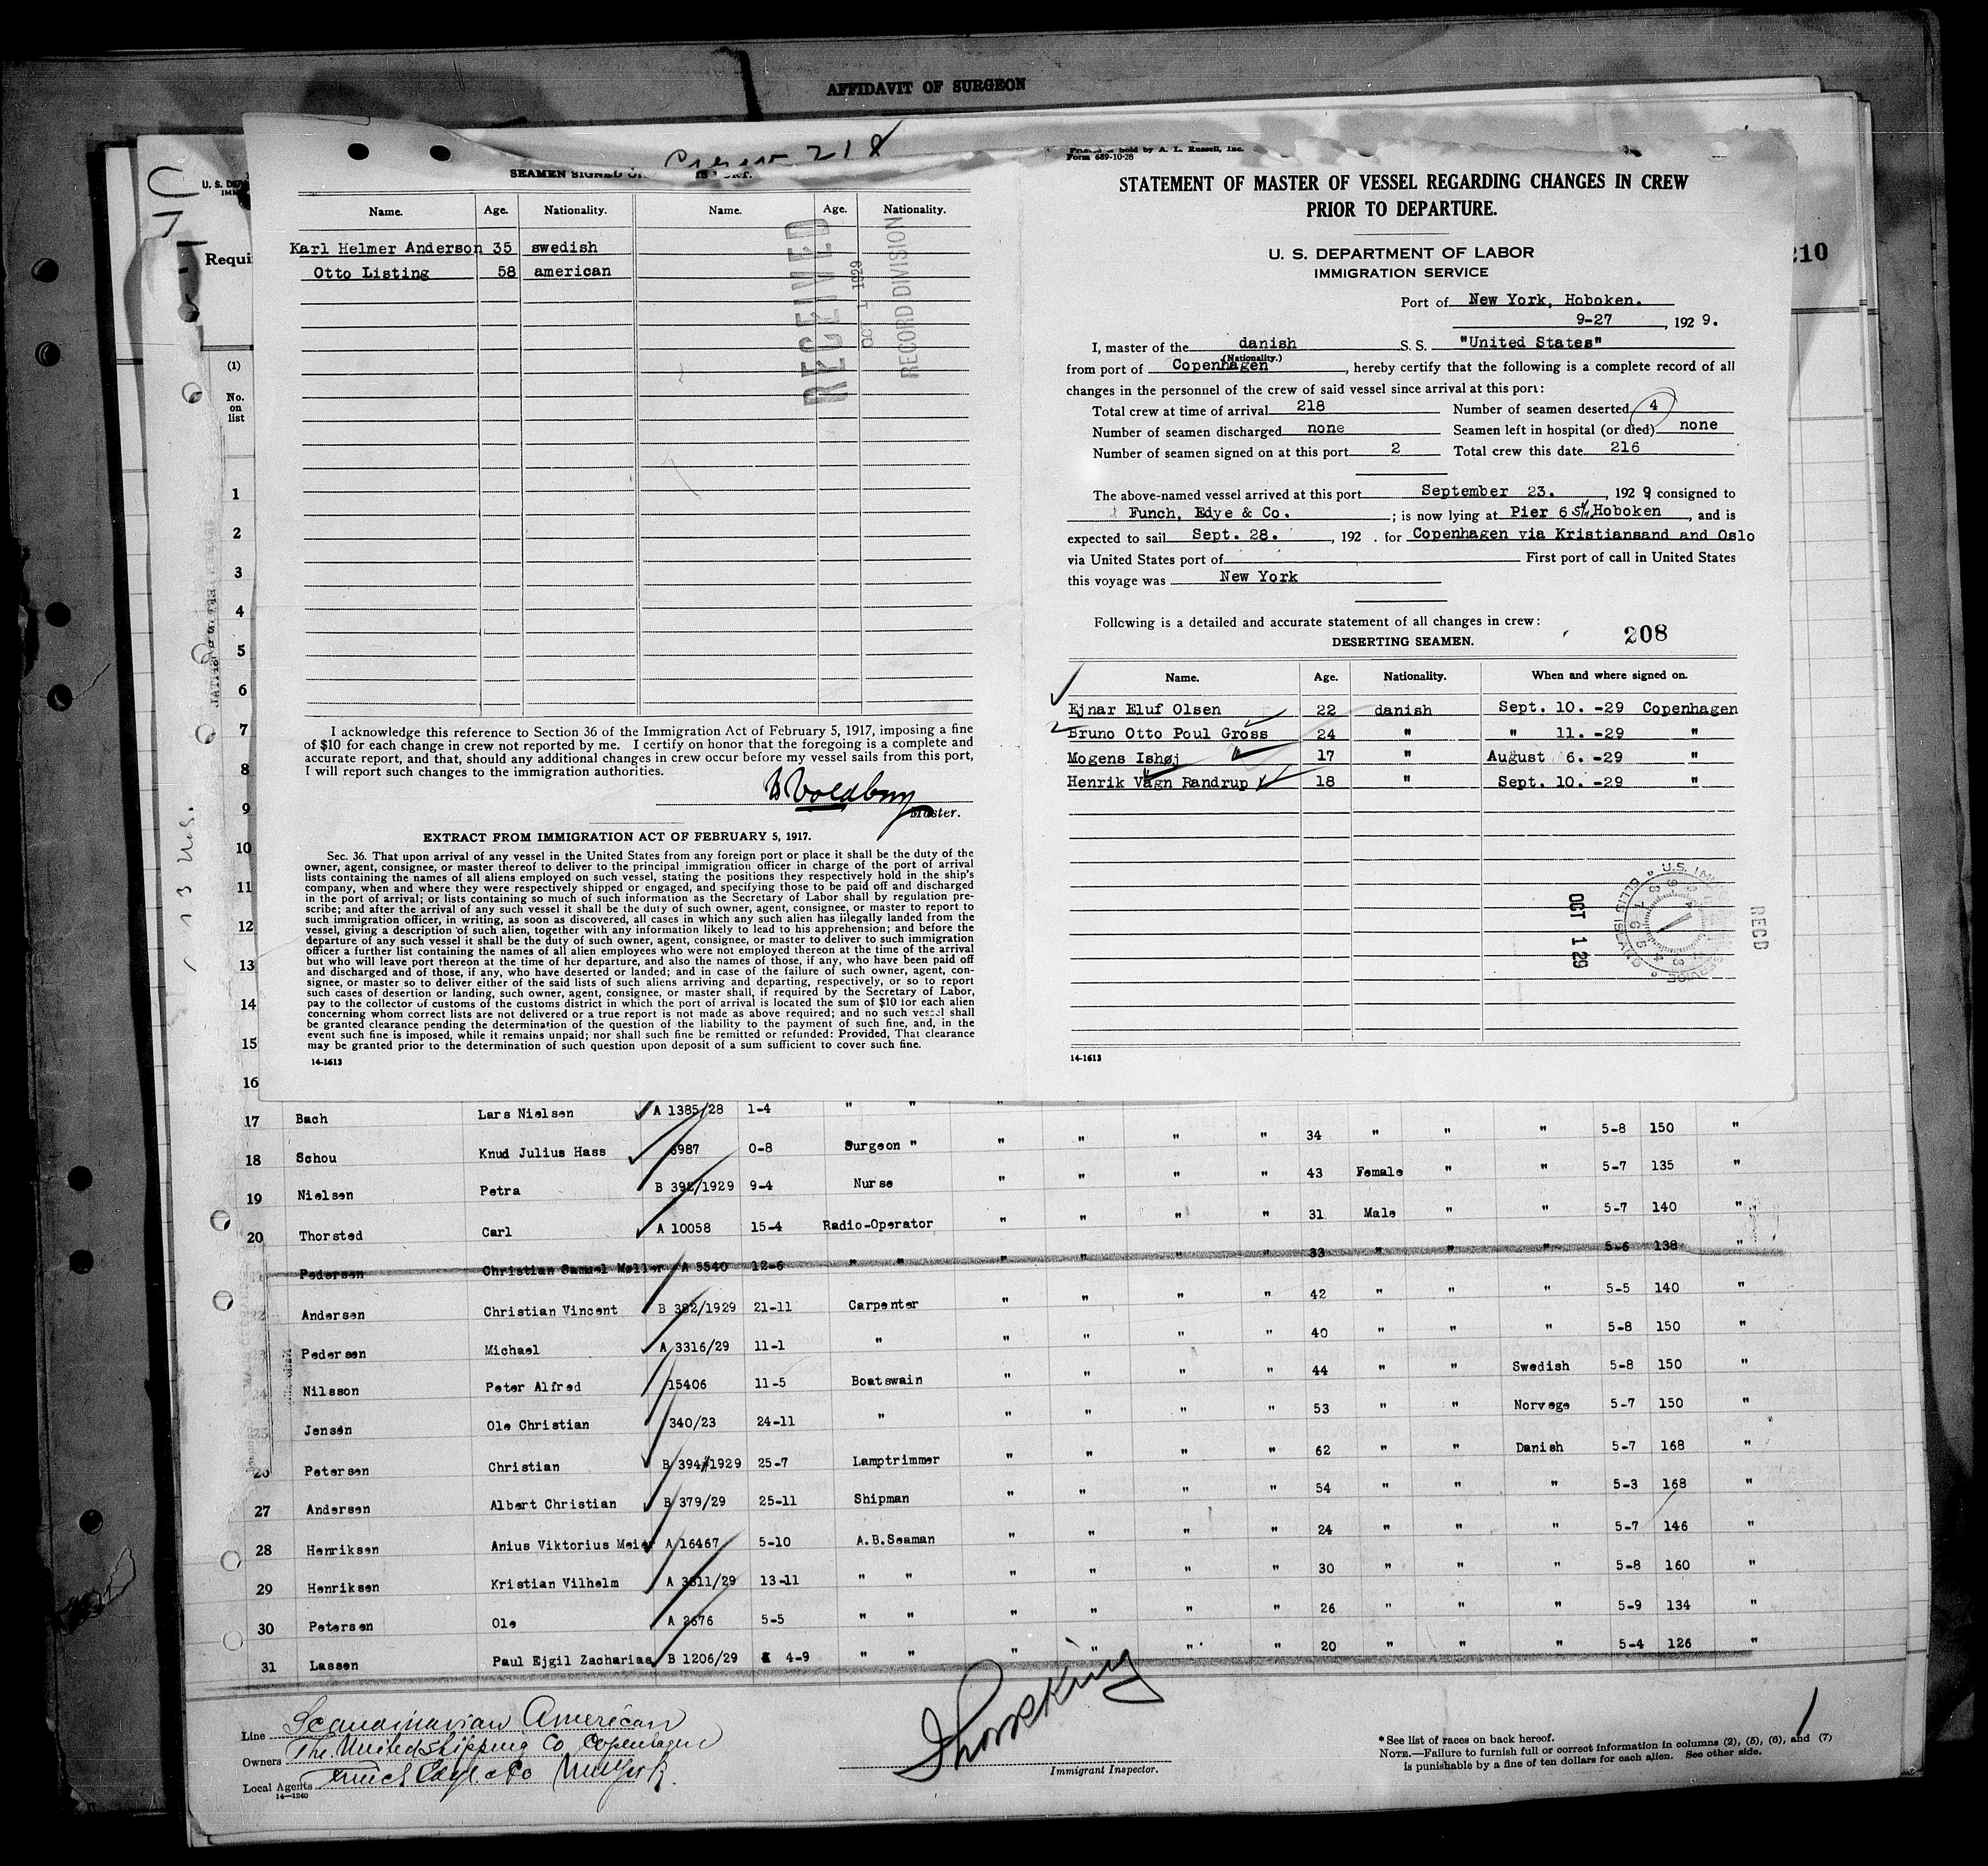 AFFIDAVIT OF SURGEON
Crew 218
SEAMEN SIGNED
Name. Age. Nationality. Name. Age. Nationality.
Karl Helmer Anderson 35 swedish
Otto Listing 58 american
RECEIVED
OCT 1 1929
RECORD DIVISION
I acknowledge this reference to Section 36 of the Immigration Act of February 5, 1917, imposing a fine
of $10 for each change in crew not reported by me. I certify on honor that the foregoing is a complete and
accurate report, and that, should any additional changes in crew occur before my vessel sails from this port,
I will report such changes to the immigration authorities.
Master.
EXTRACT FROM IMMIGRATION ACT OF FEBRUARY 5, 1917.
Sec. 36. That upon arrival of any vessel in the United States from any foreign port or place it shall be the duty of the
owner, agent, consignee, or master thereof to deliver to the principal immigration officer in charge of the port of arrival
lists containing the names of all aliens employed on such vessel, stating the positions they respectively hold in the ship's
company, when and where they were respectively shipped or engaged, and specifying those to be paid off and discharged
in the port of arrival; or lists containing so much of such information as the Secretary of Labor shall by regulation pre-
scribe; and after the arrival of any such vessel it shall be the duty of such owner, agent, consignee, or master to report to
such immigration officer, in writing, as soon as discovered, all cases in which any such alien has illegally landed from the
vessel, giving a description of such alien, together with any information likely to lead to his apprehension; and before the
departure of any such vessel it shall be the duty of such owner, agent, consignee, or master to deliver to such immigration
officer a further list containing the names of all alien employees who were not employed thereon at the time of the arrival
but who will leave port thereon at the time of her departure, and also the names of those, if any, who have been paid off
and discharged and of those, if any, who have deserted or landed; and in case of the failure of such owner, agent, con-
signee, or master so to deliver either of the said lists of such aliens arriving and departing, respectively, or so to report
such cases of desertion or landing, such owner, agent, consignee, or master shall, if required by the Secretary of Labor,
pay to the collector of customs of the customs district in which the port of arrival is located the sum of $10 for each alien
concerning whom correct lists are not delivered or a true report is not made as above required; and no such vessel shall
be granted clearance pending the determination of the question of the liability to the payment of such fine, and, in the
event such fine is imposed, while it remains unpaid; nor shall such fine be remitted or refunded: Provided, That clearance
may be granted prior to the determination of such question upon deposit of a sum sufficient to cover such fine.
14-1613
sold by A. L. Russell, Inc.
Form 689-10-28
STATEMENT OF MASTER OF VESSEL REGARDING CHANGES IN CREW
PRIOR TO DEPARTURE.
U. S. DEPARTMENT OF LABOR
IMMIGRATION SERVICE
Port of New York, Hoboken.
9-27, 1929.
I, master of the danish S. S. "United States"
(Nationality.)
from port of Copenhagen, hereby certify that the following is a complete record of all
changes in the personnel of the crew of said vessel since arrival at this port:
Total crew at time of arrival 218 Number of seamen deserted 4
Number of seamen discharged none Seamen left in hospital (or died) none
Number of seamen signed on at this port 2 Total crew this date 216
The above-named vessel arrived at this port September 23., 1929 consigned to
Funch, Edye & Co.; is now lying at Pier 6 St, Hoboken, and is
expected to sail Sept. 28., 192 . for Copenhagen via Kristiansand and Oslo
via United States port of First port of call in United States
this voyage was New York
Following is a detailed and accurate statement of all changes in crew:
208
DESERTING SEAMEN.
Name. Age. Nationality. When and where signed on.
Ejnar Eluf Olsen 22 danish Sept. 10. -29 Copenhagen
Bruno Otto Poul Gross 24 " " 11. -29 "
Mogens Ishøj 17 " August 6. -29 "
Henrik Vagn Randrup 18 " Sept. 10. -29 "
OCT 1 29
RECD
14-1613
210
U. S. DE
Requi
(1)
No.
on
list
1
2
3
4
5
6
7
8
9
10
11
12
13
14
15
16
17 Bach Lars Nielsen A 1385/28 1-4 " " "
18 Schou Knud Julius Hass 6987 0-8 Surgeon " " " " " 34 " " " 5-8 150 "
19 Nielsen Petra B 392/1929 9-4 Nurse " " " " 43 Female " " 5-7 135 "
20 Thorsted Carl A 10058 15-4 Radio-Operator " " " " 31 Male " " 5-7 140 "
Pedersen Christian Samuel Møller A 5540 12-6 " " " " " " 33 " " " 5-6 138 "
22 Andersen Christian Vincent B 382/1929 21-11 Carpenter " " " " 42 " " " 5-5 140 "
Pedersen Michael A 3316/29 11-1 " " " " " 40 " " " 5-8 150 "
24 Nilsson Peter Alfred 15406 11-5 Boatswain " " " " 44 " " Swedish 5-8 150 "
25 Jensen Ole Christian 340/23 24-11 " " " " " 53 " " Norvege 5-7 150 "
26 Petersen Christian B 394/1929 25-7 Lamptrimmer " " " " 62 " " Danish 5-7 168 "
27 Andersen Albert Christian B 379/29 25-11 Shipman " " " " 54 " " " 5-3 168 "
28 Henriksen Anius Viktorius Meier A 16467 5-10 A.B.Seaman " " " " 24 " " " 5-7 146 "
29 Henriksen Kristian Vilhelm A 3811/29 13-11 " " " " " " 30 " " " 5-8 160 "
30 Petersen Ole A 2676 5-5 " " " " " " 26 " " " 5-9 134 "
31 Lassen Paul Ejgil Zacharias B 1206/29 4-9 " " " " " " 20 " " " 5-4 126 "
Line Scandinavian American
Owners The United Shipping Co Copenhagen
Local Agents Funch Edye & Co New York
14—1240
Immigrant Inspector.
* See list of races on back hereof.
NOTE.—Failure to furnish full or correct information in columns (2), (5), (6), and (7)
is punishable by a fine of ten dollars for each alien. See other side.